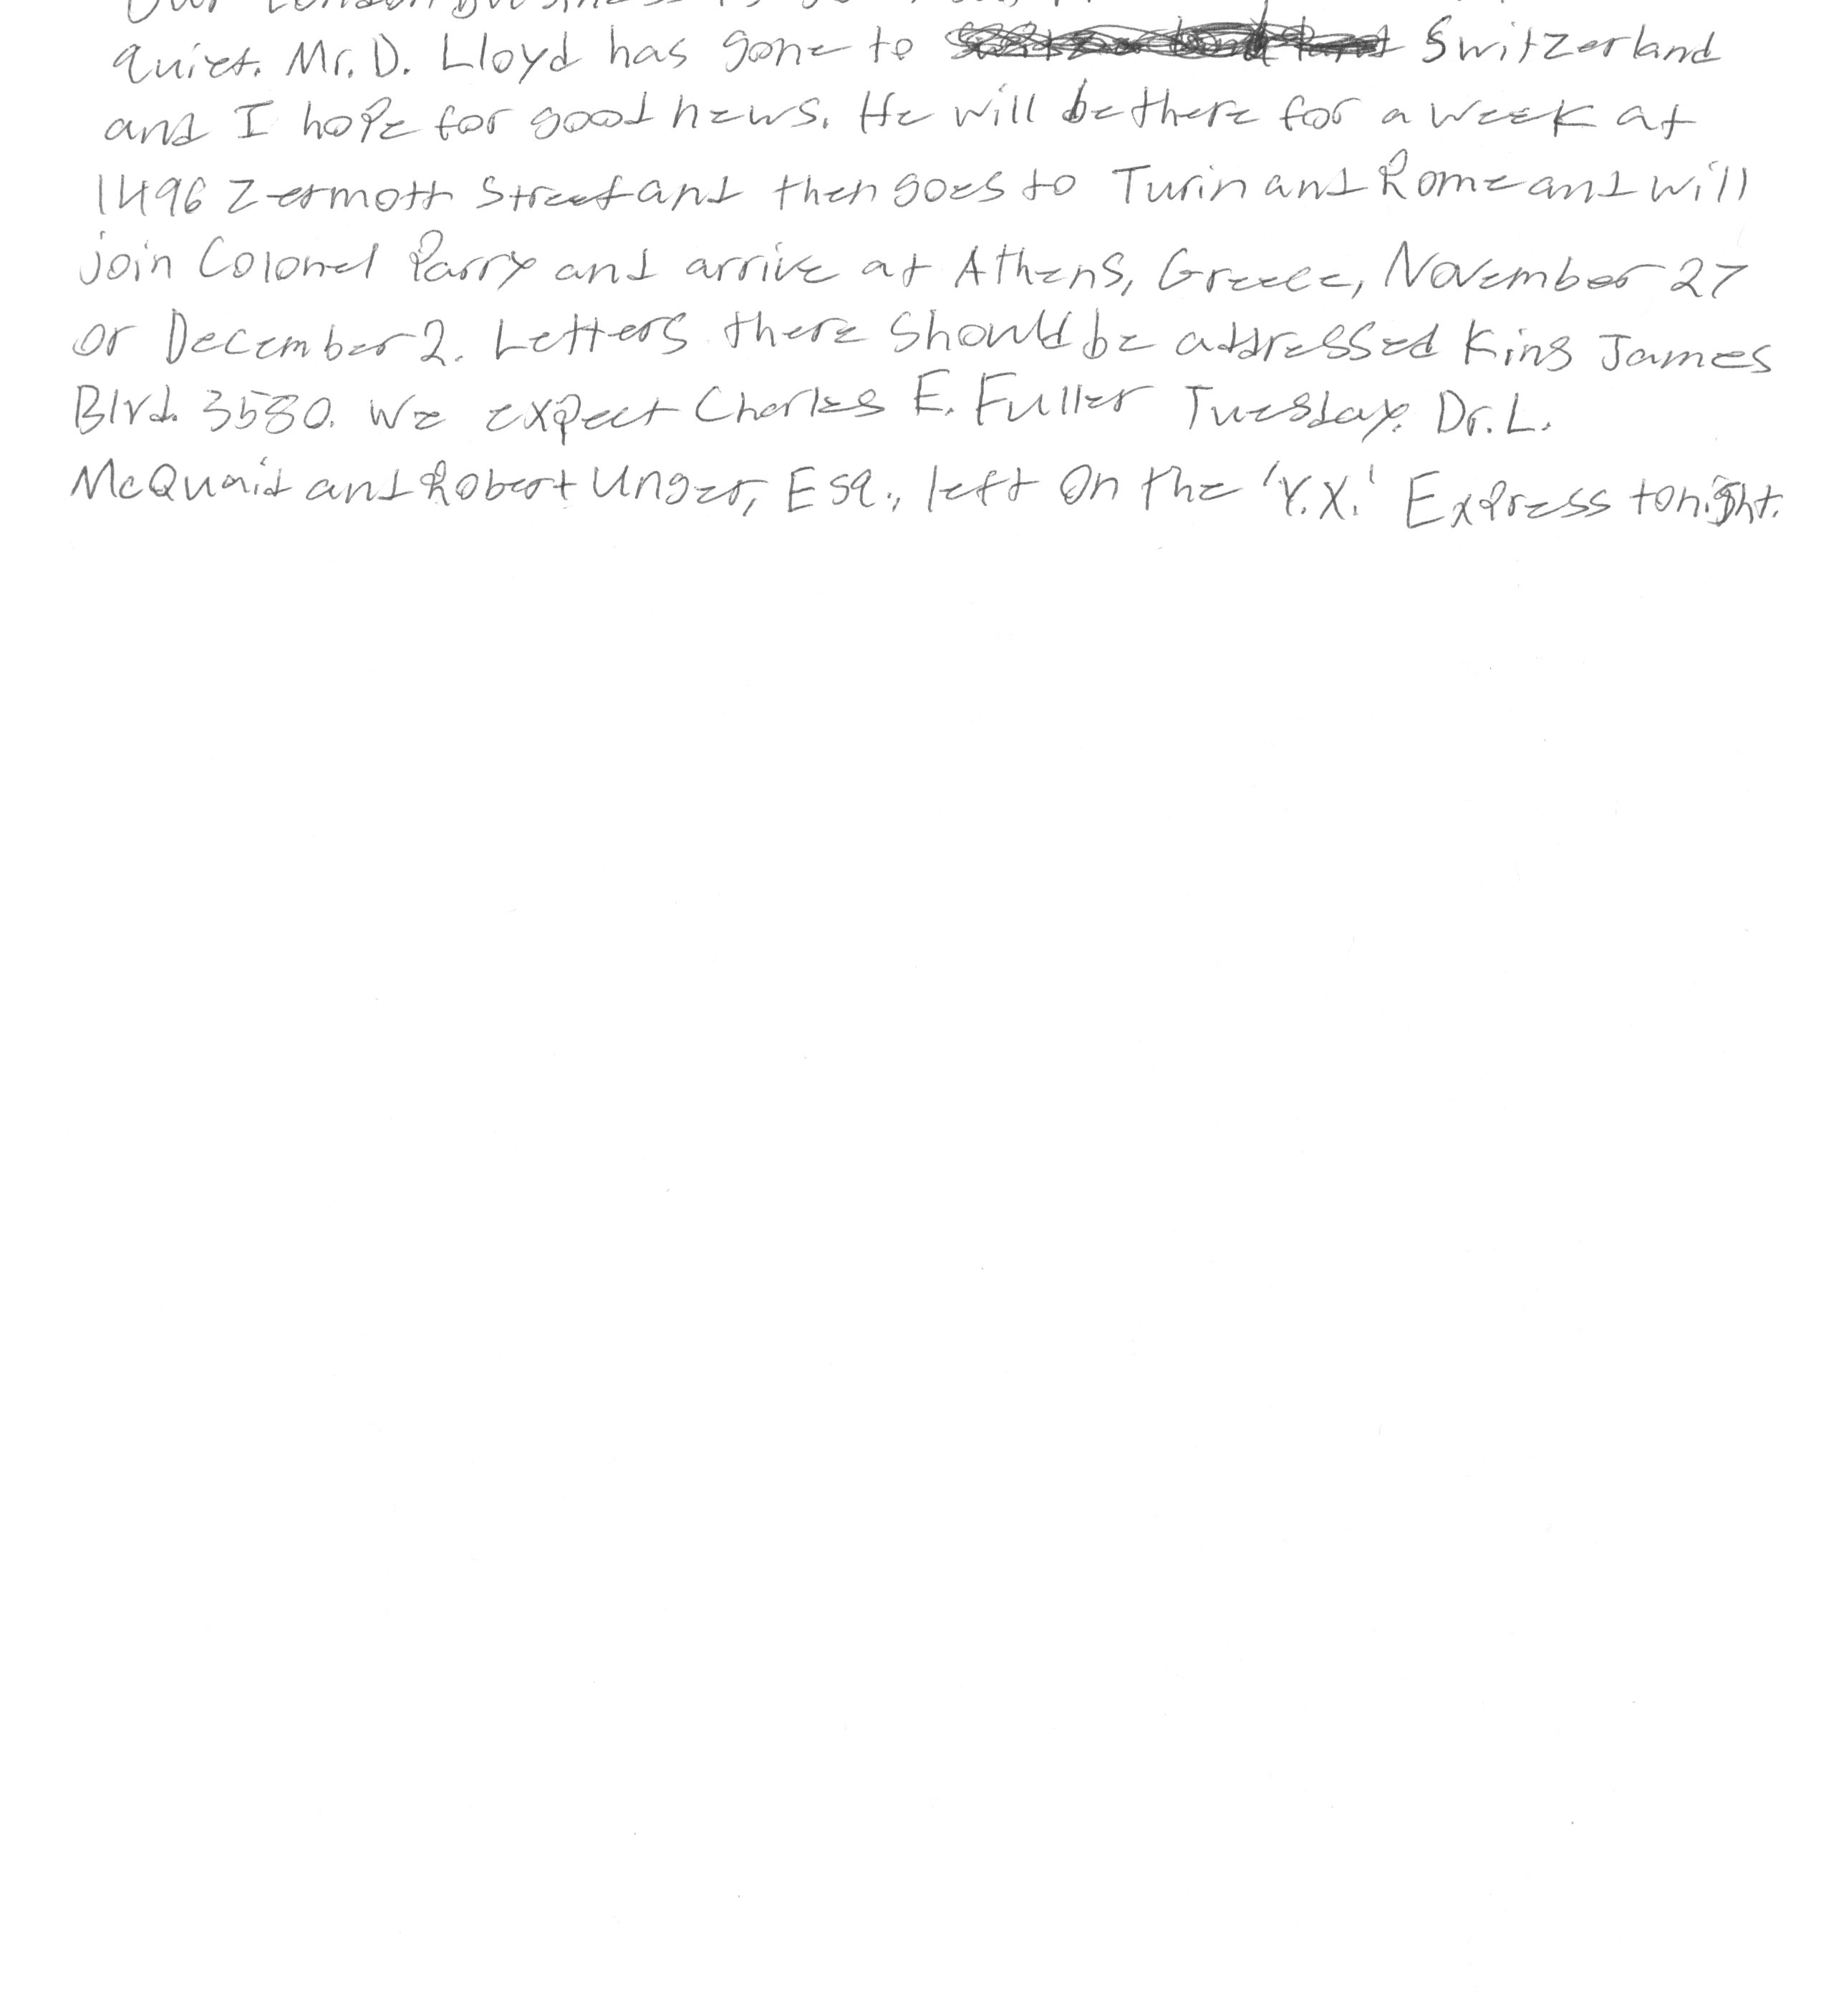 Our London business is
quiet. Mr. D. Lloyd has gone to Switzerland
and I hope for good news. He will be there for a week at
1496 Zermott Street and then goes to Turin and Rome and will
join Colonel Parry and arrive at Athens, Greece, November 27
or December 2. Letters there should be addressed King James
Blvd. 3580. We expect Charles E. Fuller Tuesday. Dr. L.
McQuaid and Robert Unger, Esq., left on the 'Y.X.' Express tonight.